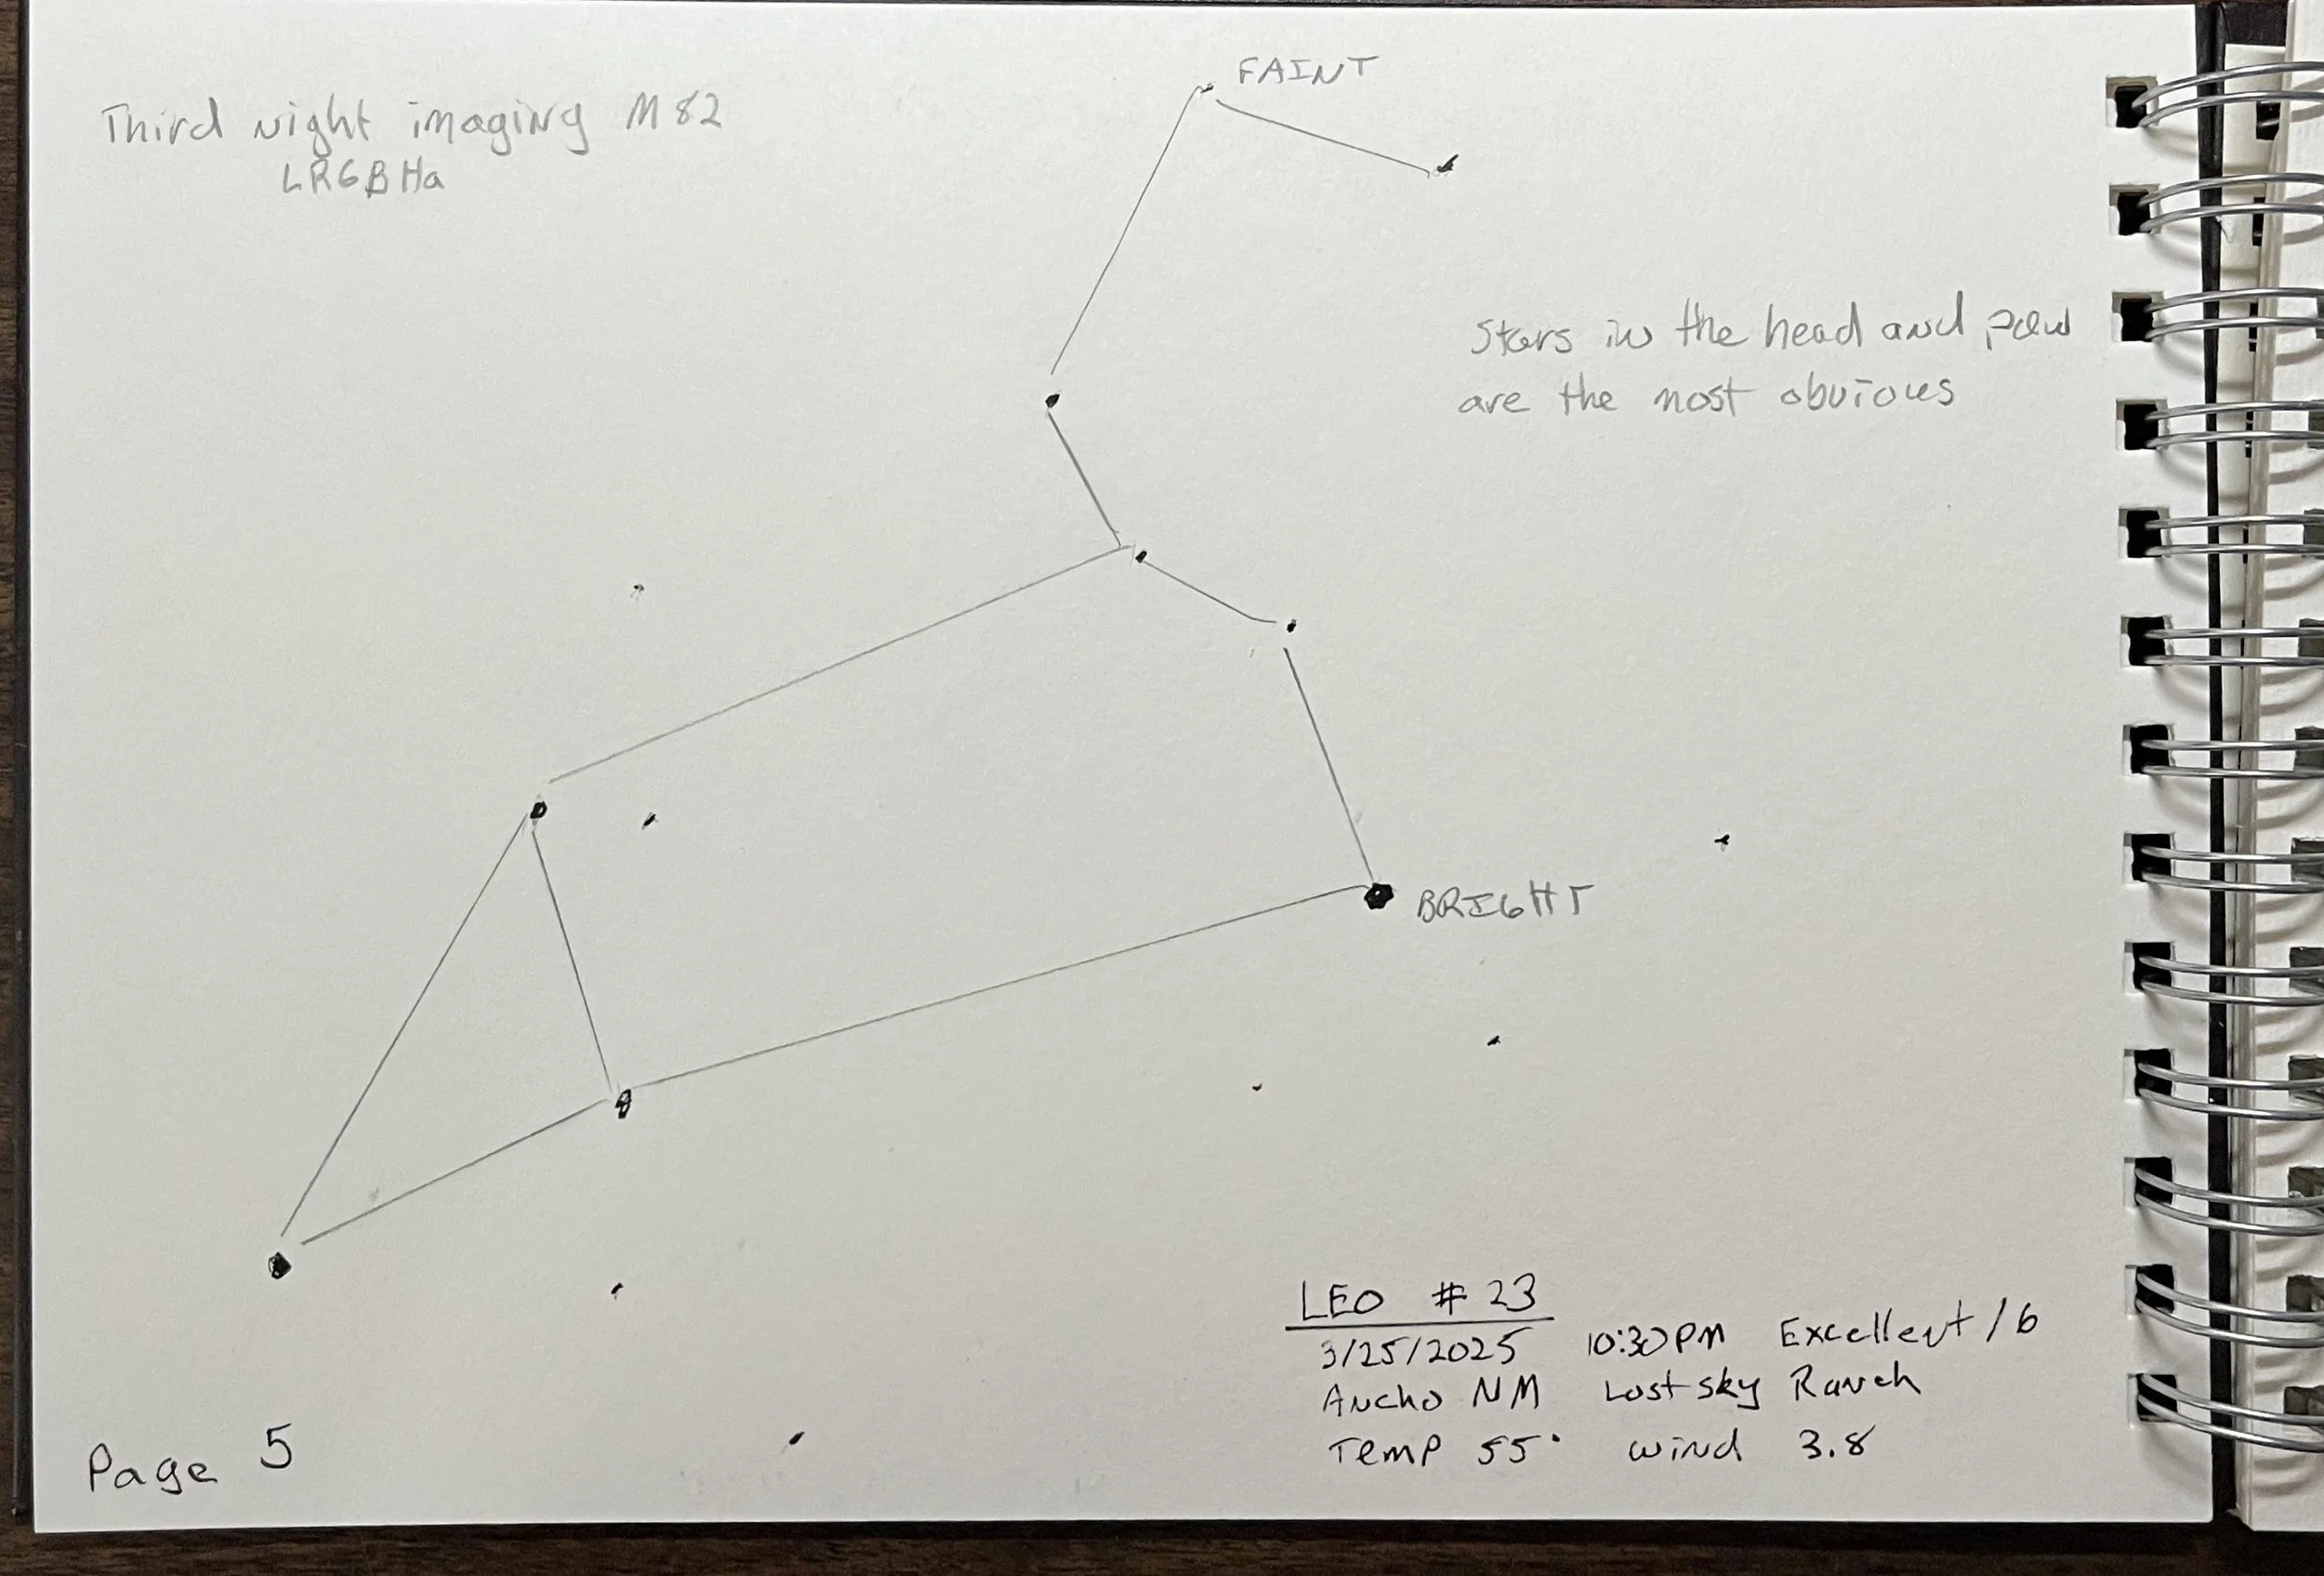 FAINT
Third Night imaging M82
LRGBHa
Stars in the head and paw
are the most obvious
BRIGHT
LEO #23
3/25/2025 10:30PM Excellent/6
Ancho NM Lost Sky Ranch
Temp 55° Wind 3.8
Page 5